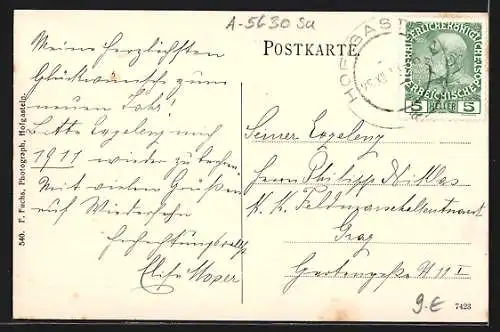 A-5630 Sa
POSTKARTE.
HOFGAST
KAISERLICHE KÖNIGLICHE
ÖSTERREICHISCHE
5 HELLER 5
Meine herzlichsten
Glückwünsche zum
neuen Jahr!
Bitte Exzellenz nach
1911 wieder zu
Mit vielen Grüßen
auf Wiedersehn
Hochachtungsvollst
Elise Moser
Seiner Exzellenz
Herrn Philipp Niklas
K. K. Feldmarschalleutnant
Graz
Gartengasse N 11 I
540. F. Fuchs, Photograph, Hofgastein.
g.E
7423